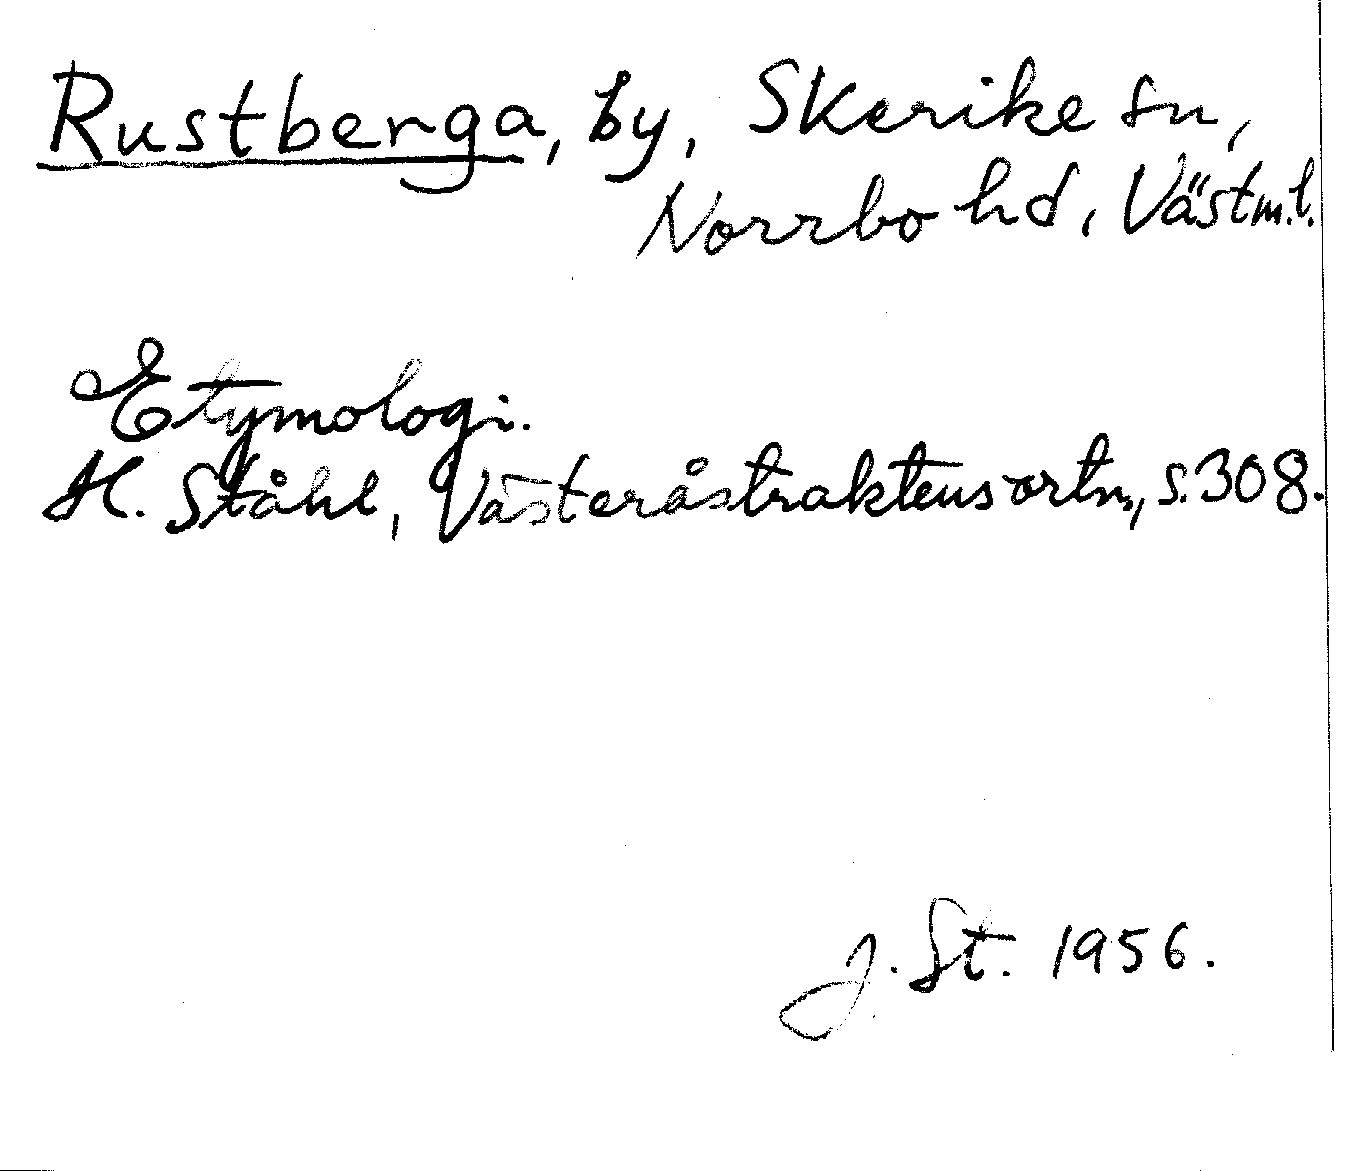 Rustberga, by, Skerike sn,
Norrbo hd, Västm.l.
Etymologi.
H. Ståhl, Västeråstraktens ortn., s. 308.
J. St. 1956.